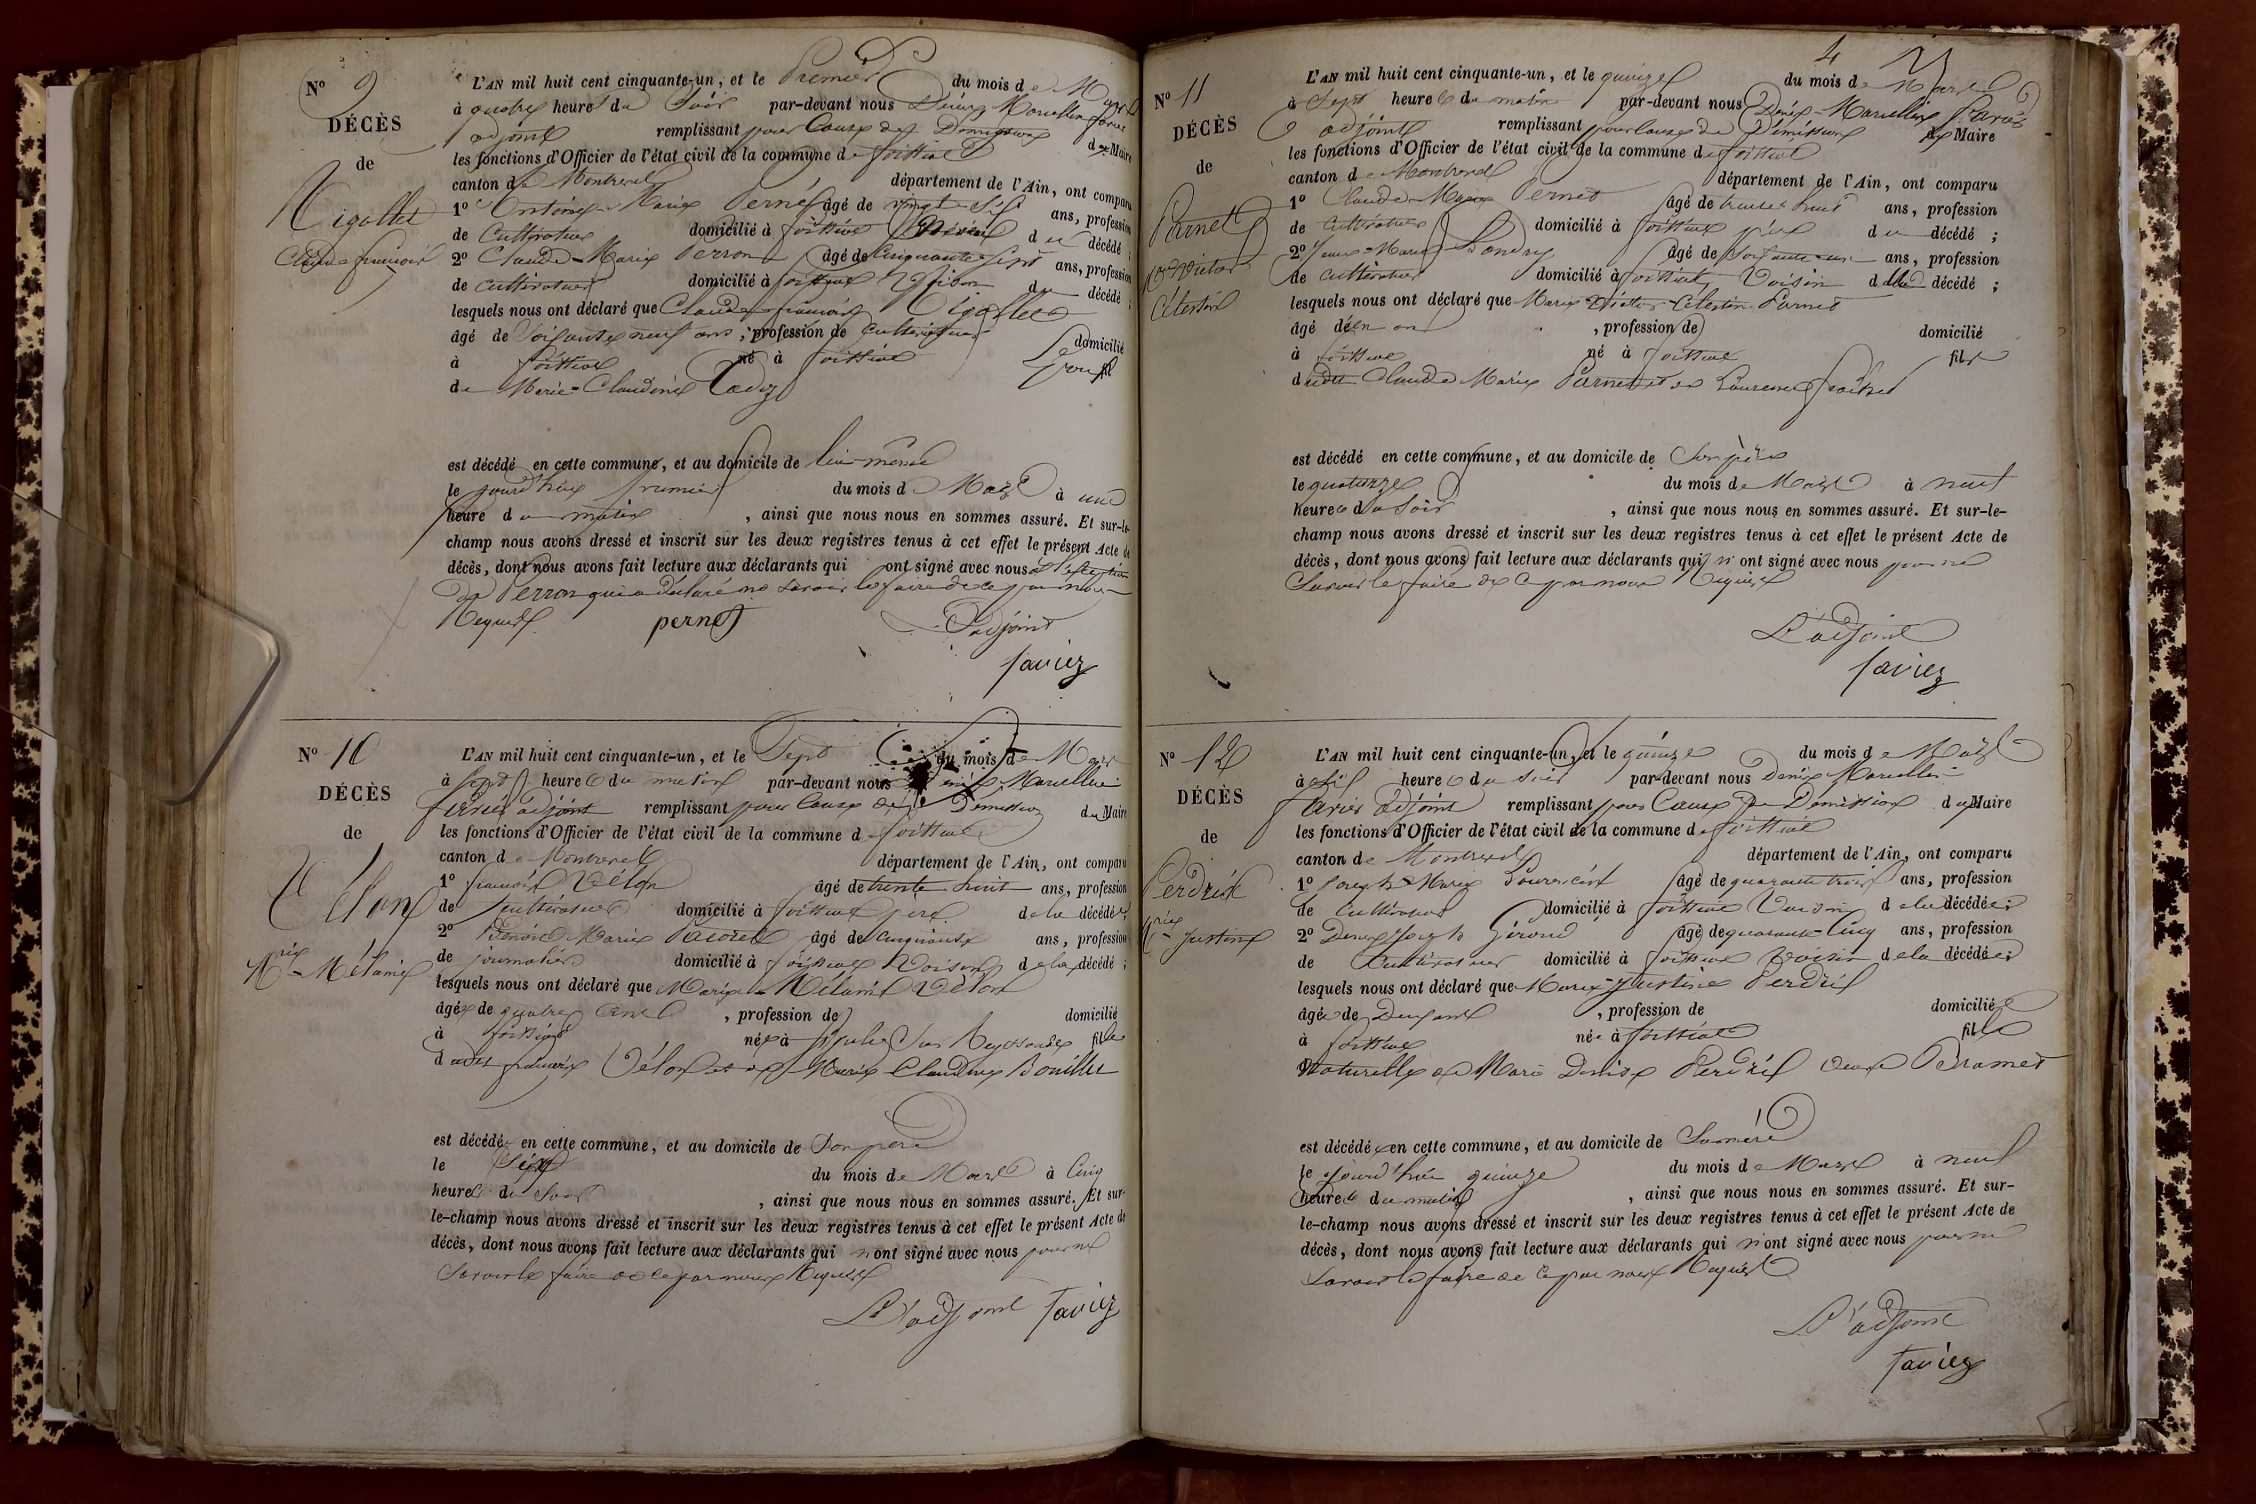 No 9
DÉCÈS
de
Rigollet
Claude françois
L'AN mil huit cent cinquante-un, et le Premier du mois de Mars
à quatre heures du Soir par-devant nous Denis Marcellin
adjoint remplissant pour Cause de Démission du Maire
les fonctions d'Officier de l'état civil de la commune de foissiat
canton de Montrevel département de l'Ain, ont comparu
1° Antoine Marie Pernet âgé de vingt ans, profession
de Cultivateur domicilié à foissiat du décédé ;
2° Claude Marie Perron âgé de Cinquante Sept ans, profession
de cultivateur domicilié à foissiat Voisin du décédé ;
lesquels nous ont déclaré que Claude françois Rigollet
âgé de Soixante neuf ans, profession de Cultivateur domicilié
à foissiat né à foissiat
de Marie Claudine
est décédé en cette commune, et au domicile de lui même
le jourd'hui premier du mois de Mars à une
heure du matin , ainsi que nous nous en sommes assuré. Et sur-le-
champ nous avons dressé et inscrit sur les deux registres tenus à cet effet le présent Acte de
décès, dont nous avons fait lecture aux déclarants qui ont signé avec nous à l'exception
de Perron qui a déclaré ne savoir le faire de ce par nous
Requis pernet L'adjoint
favier
No 10
DÉCÈS
de
Vélon
Mrie Mélanie
L'AN mil huit cent cinquante-un, et le Sept du mois de Mars
à Sept heures du matin par-devant nous Denis Marcellin
favier adjoint remplissant pour Cause de Démission du Maire
les fonctions d'Officier de l'état civil de la commune de foissiat
canton de Montrevel département de l'Ain, ont comparu
1° françois Vélon âgé de trente huit ans, profession
de Cultivateur domicilié à foissiat père de la décédée ;
2° Marie âgé de Cinquante ans, profession
de journalier domicilié à foissiat Voisin de la décédé ;
lesquels nous ont déclaré que Marie Mélanie Vélon
âgée de quatre ans , profession de domicilié
à foissiat née à St julien Sur Reyssouze fille
dudit françois Vélon et de Marie Claudine Bouillet
est décédée en cette commune, et au domicile de Son père
le Six du mois de Mars à Cinq
heures du Soir , ainsi que nous nous en sommes assuré. Et sur-
le-champ nous avons dressé et inscrit sur les deux registres tenus à cet effet le présent Acte de
décès, dont nous avons fait lecture aux déclarants qui n'ont signé avec nous pour ne
Savoir le faire de ce par nous Requis
L'adjoint favier
4
No 11
DÉCÈS
de
Pernet
Mie Victor
Célestin
L'AN mil huit cent cinquante-un, et le quinze du mois de Mars
à Sept heures du matin par-devant nous Denis Marcellin favier
adjoint remplissant pour Cause de Démission du Maire
les fonctions d'Officier de l'état civil de la commune de foissiat
canton de Montrevel département de l'Ain, ont comparu
1° Claude Marie Pernet âgé de trente huit ans, profession
de cultivateur domicilié à foissiat père du décédé ;
2° Jean Marie âgé de Soixante un ans, profession
de cultivateur domicilié à foissiat Voisin dudit décédé ;
lesquels nous ont déclaré que Marie Victor Célestin Pernet
âgé d'un an , profession de domicilié
à foissiat né à foissiat fils
dudit Claude Marie Pernet et de Laurence
est décédé en cette commune, et au domicile de Son père
le quatorze du mois de Mars à neuf
heures du Soir , ainsi que nous nous en sommes assuré. Et sur-le-
champ nous avons dressé et inscrit sur les deux registres tenus à cet effet le présent Acte de
décès, dont nous avons fait lecture aux déclarants qui n'ont signé avec nous pour ne
Savoir le faire de ce par nous Requis
L'adjoint
favier
No 12
DÉCÈS
de
Perdrix
Mrie Justine
L'AN mil huit cent cinquante-un, et le quinze du mois de Mars
à Six heures du Soir par-devant nous Denis Marcellin
favier adjoint remplissant pour Cause de Démission du Maire
les fonctions d'Officier de l'état civil de la commune de foissiat
canton de Montrevel département de l'Ain, ont comparu
1° Joseph Marie Laurencin âgé de quarante trois ans, profession
de Cultivateur domicilié à foissiat Voisin de la décédée ;
2° Denis Joseph Giroud âgé de quarante Cinq ans, profession
de Cultivateur domicilié à foissiat Voisin de la décédée ;
lesquels nous ont déclaré que Marie Justine Perdrix
âgée de Deux ans , profession de domiciliée
à foissiat née à foissiat fille
Naturelle de Marie Denise Perdrix Veuve
est décédée en cette commune, et au domicile de Sa mère
le jourd'hui quinze du mois de Mars à neuf
heures du matin , ainsi que nous nous en sommes assuré. Et sur-
le-champ nous avons dressé et inscrit sur les deux registres tenus à cet effet le présent Acte de
décès, dont nous avons fait lecture aux déclarants qui n'ont signé avec nous pour ne
Savoir le faire de ce par nous Requis
L'adjoint
favier